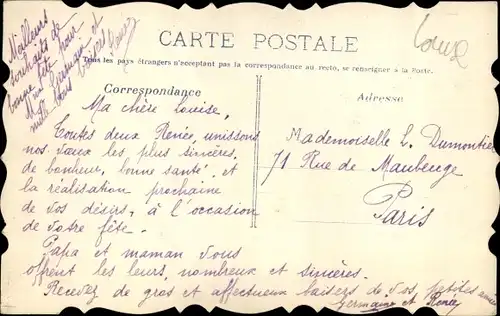 Meilleurs
souhaits de
bonne fête pour
Mme Germaine et
mille bons baisers
CARTE POSTALE
Tous les pays étrangers n'acceptent pas la correspondance au recto, se renseigner à la Poste.
Correspondance
Ma chère Louise,
Toutes deux Renée, unissons
nos vœux les plus sincères,
de bonheur, bonne santé, et
la réalisation prochaine
de vos désirs, à l'occasion
de votre fête.
Papa et maman vous
offrent les leurs, nombreux et sincères.
Recevez de gros et affectueux baisers de vos petites amies
Germaine et Renée
Adresse
Mademoiselle L. Dumontier
71 Rue de Maubeuge
Paris